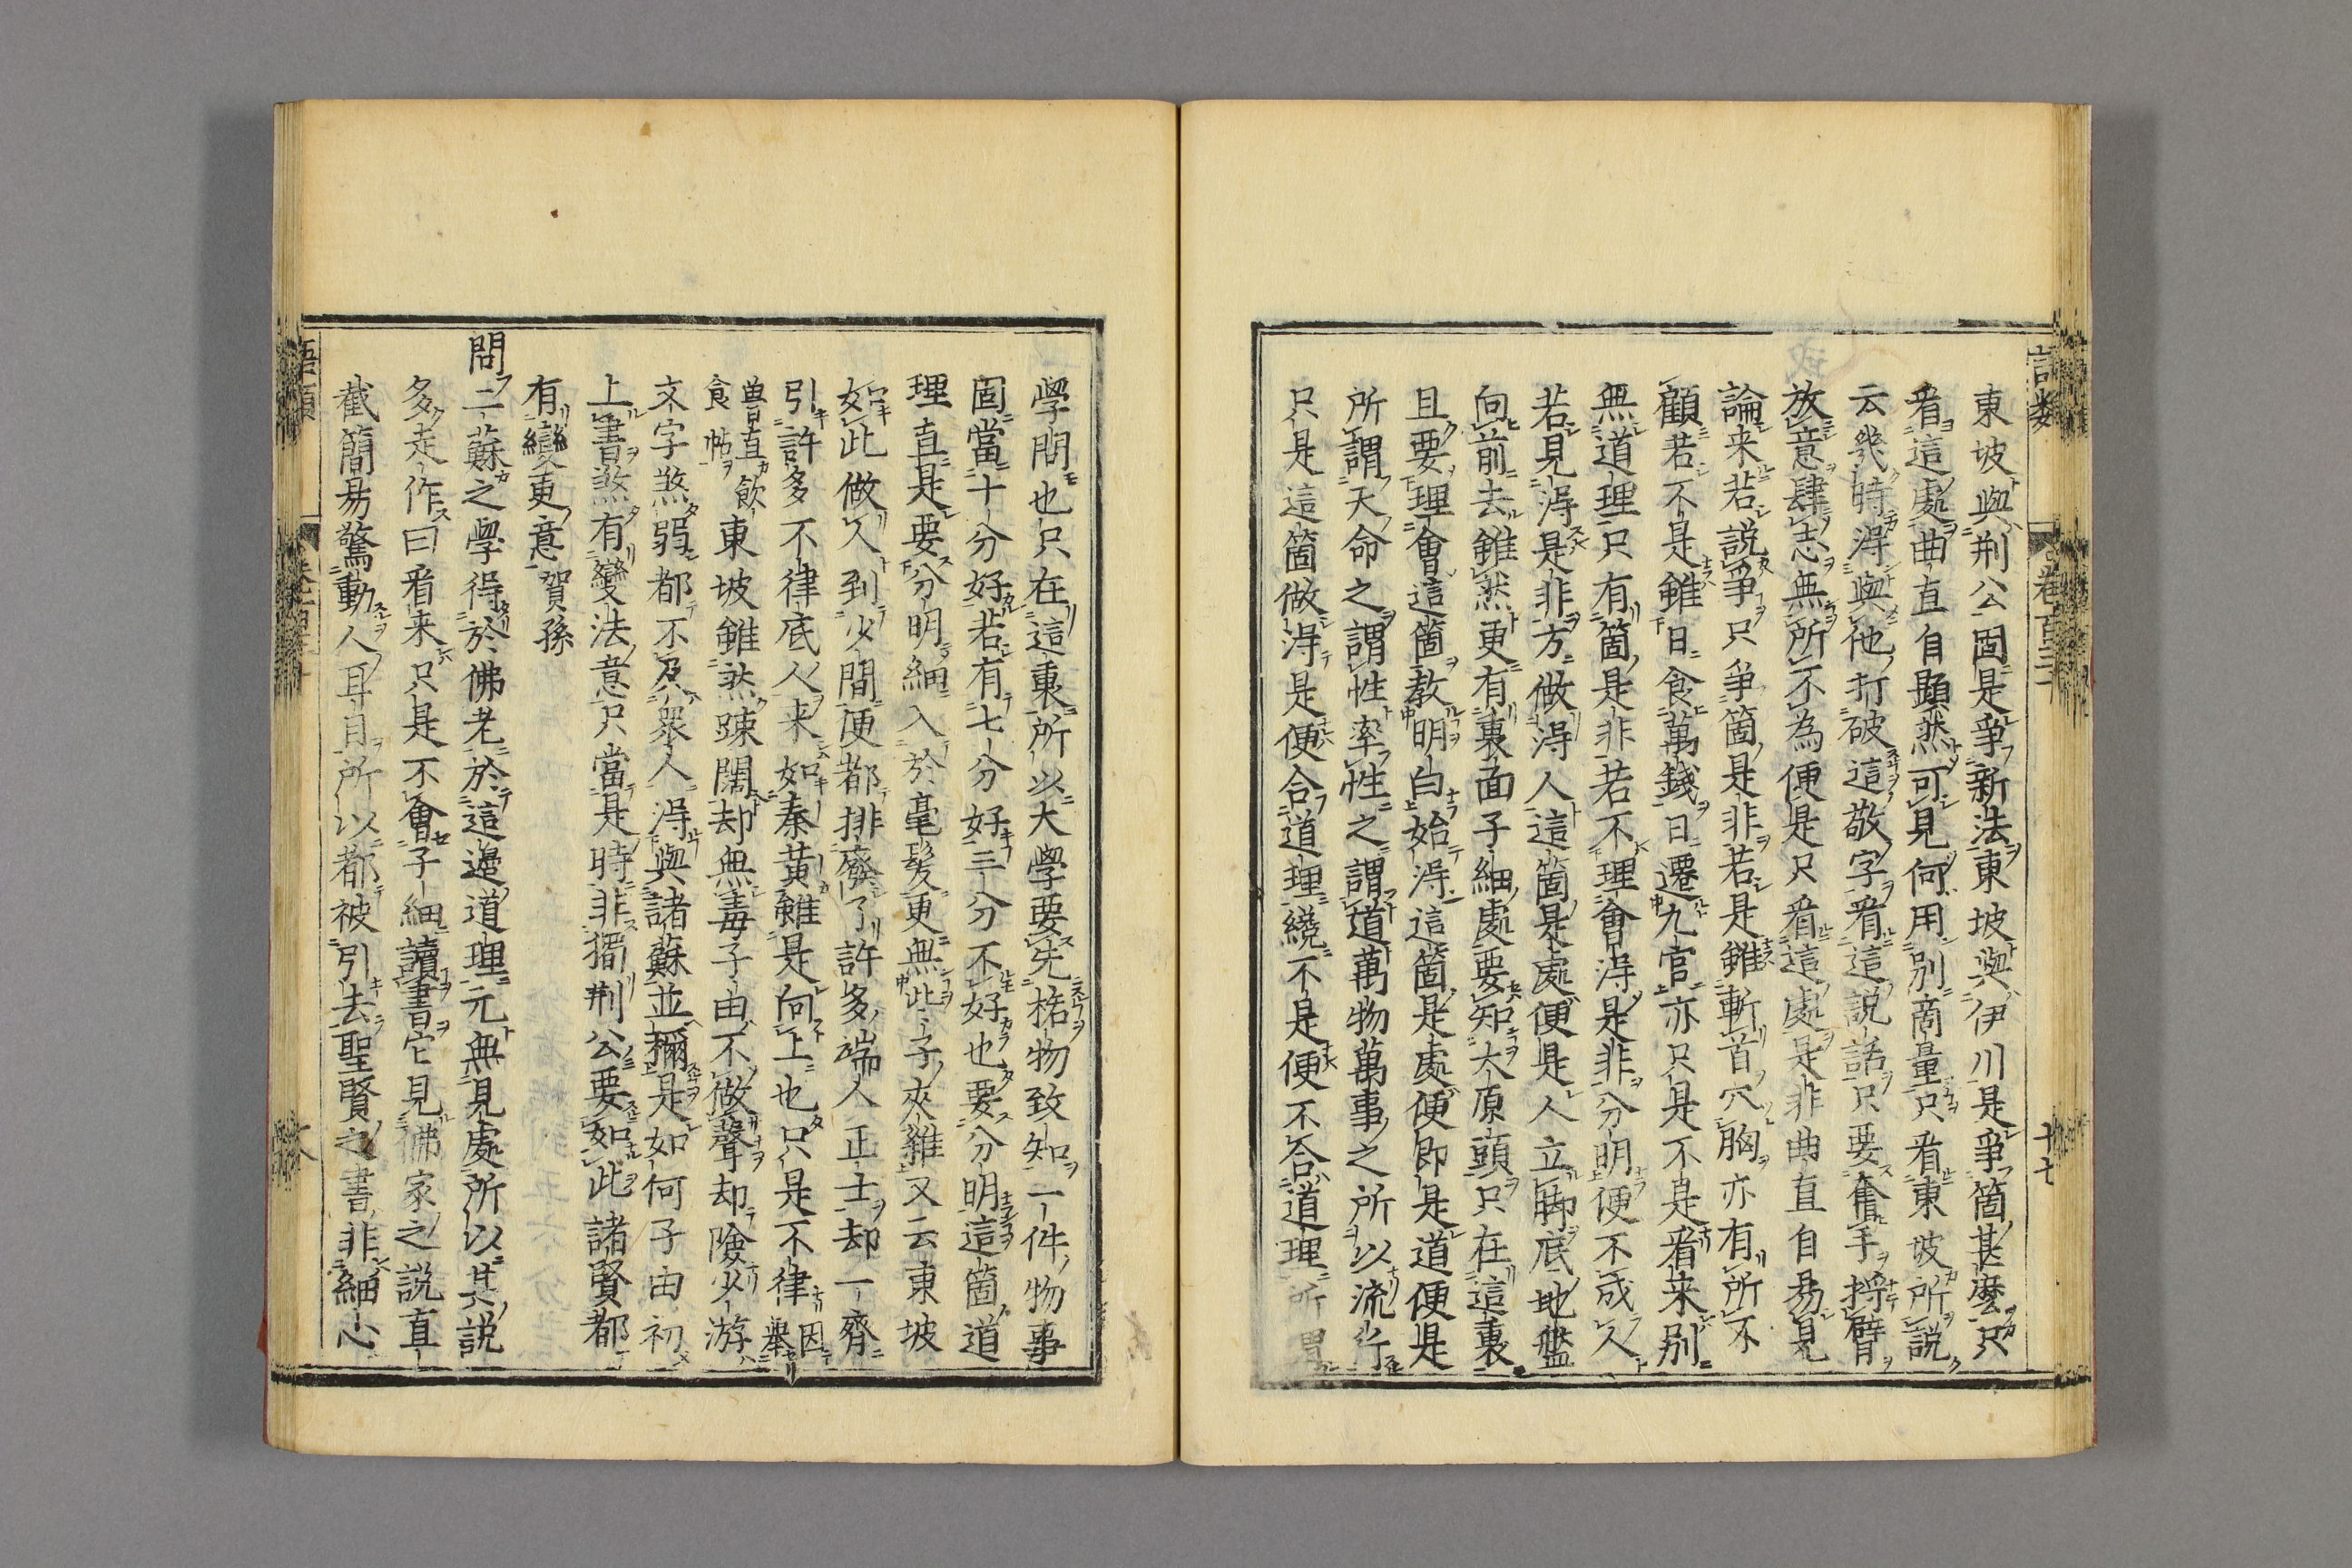 東坡與荆公固是爭新法東坡與伊川是爭箇甚麽只
看這處曲直自顯然可見何用别商量只看東坡所説
云幾時得與他打破這敬字看這説話只要奮手捋臂
放意肆志無所不為便是只看這處是非曲直自易見
論来若説爭只爭箇是非若是雖斬首穴胸亦有所不
顧若不是雖日食萬錢日遷九官亦只是不是看来别
無道理只有箇是非若不理會得是非分明便不成人
若見得是非方做得人這箇是處便是人立脚底地盤
向前去雖然更有裏面子細處要知大原頭只在這裏
且要理會這箇教明白始得這箇是處便即是道便是
所謂天命之謂性率性之謂道萬物萬事之所以流行
只是這箇做得是便合道理纔不是便不合道理所
學問也只在這裏所以大學要先格物致知一件物事
固當十分好若有七分好三分不好也要分明這箇道
理直是要分明細入於毫髮更無些子夾雜又云東坡
如此做人到少間便都排廢了許多端人正士却一齊
引許多不律底人来如秦黄雖是向上也只是不律因舉
魯直飲食帖東坡雖然踈闊却無毒子由不做聲却險少游
文字煞弱都不及衆人得與諸蘇並稱是如何子由初
上書煞有變法意只當是時非獨荆公要如此諸賢都
有變更意賀孫
問二蘇之學得於佛老於這邊道理元無見處所以其説
多走作曰看来只是不會子細讀書它見佛家之説直
截簡易驚動人耳目所以都被引去聖賢之書非細心